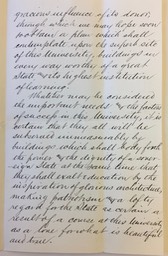 gracious influence of its donor,
through which we may hope soon
to obtain a plan which shall
contemplate upon the present site
of this University, buildings in
every way worthy of a great
State & its highest institution
of learning.
Whatever may be considered
the important needs & the
of success in this University, it is
certain that they all will be
subserved immeasurably by
buildings which shall body forth
the power & the dignity of a sover-
eign State at the same time that
they shall exalt education by the
inspiration of glorious architecture,
making patriotism & a lofty
regard for the State as certain a
result of a course at this University
as a love for what is beautiful
and true.